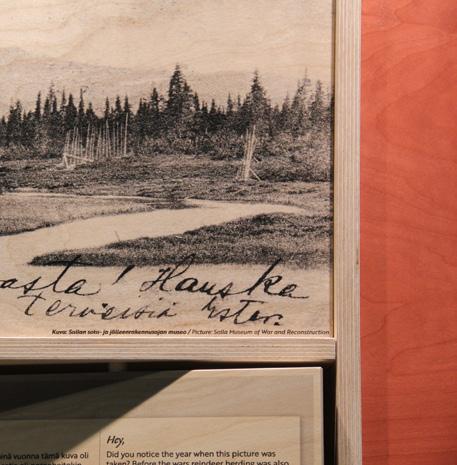 asta! Hauska
terveisiä Ester.
Kuva: Sallan sota- ja jälleenrakennusajan museo / Picture: Salla Museum of War and Reconstruction
inä vuonna tämä kuva oli
Hey,
Did you notice the year when this picture was
taken? Before the wars reindeer herding was also